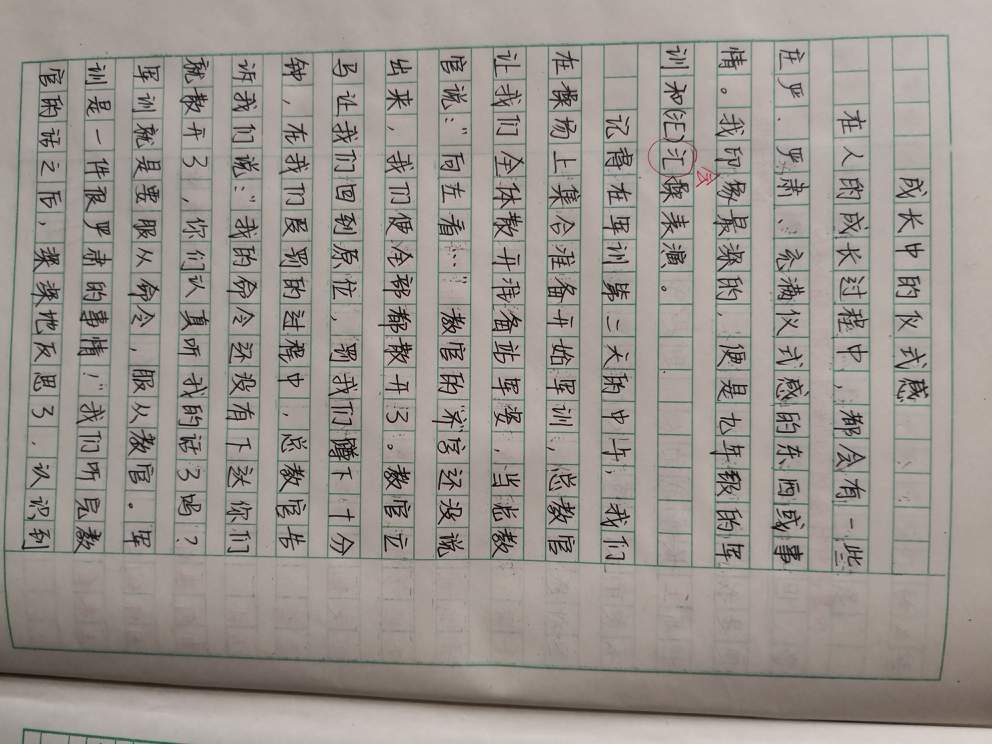 成长中的仪式感
在人的成长过程中，都会有一些
庄严、严肃、充满仪式感的东西或事
情。我印象最深的，便是九年级的军
训和汇汇操表演。
记得在军训第二天的中午，我们
在操场上集合准备开始军训，总教官
让我们全体散开准备站军姿，当总教
官说：“向左看…”教官的齐字还没说
出来，我们便全部都散开了。教官立
马让我们回到原位，罚我们蹲下十分
钟，在我们受罚的过程中，总教官告
诉我们说：“我的命令还没有下达你们
就散开了，你们认真听我的话了吗？
军训就是要服从命令，服从教官。军
训是一件很严肃的事情！”我们听完教
官的话之后，深深地反思了，认识到